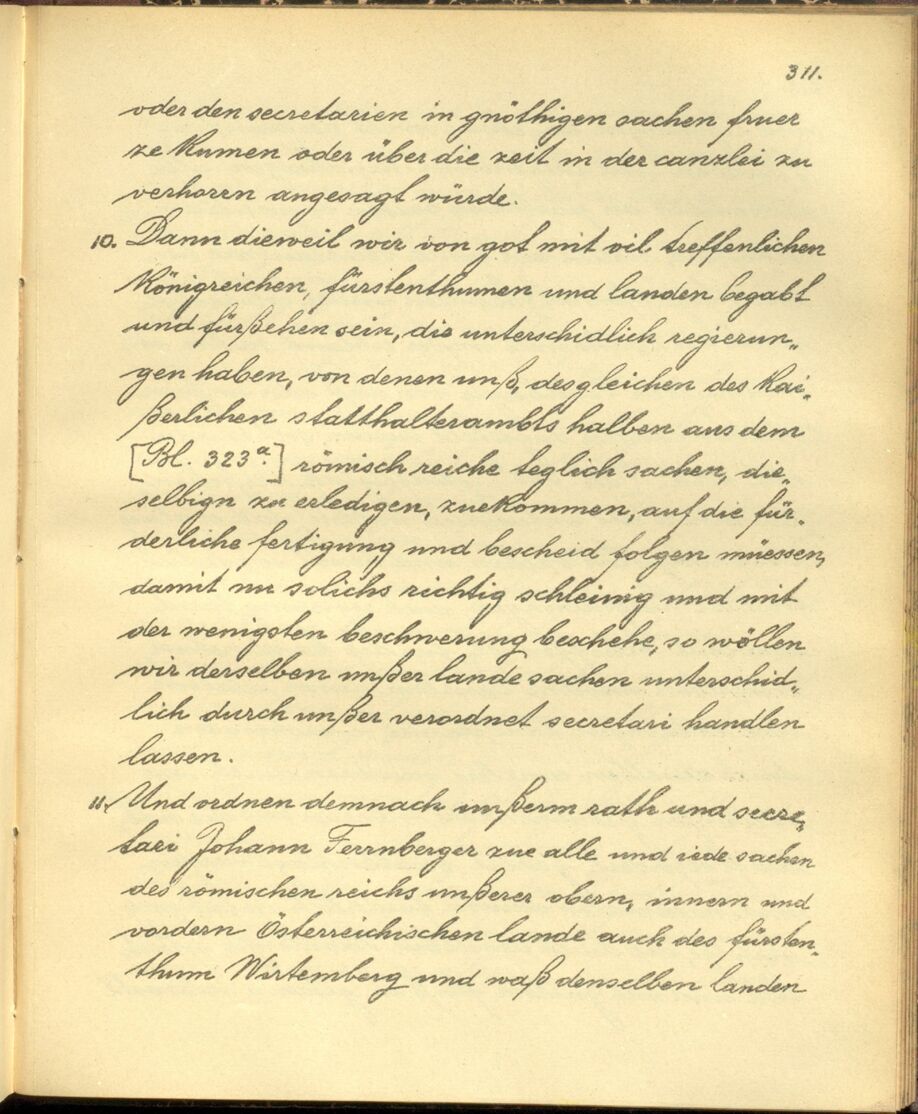 311.
oder den secretarien in gnöthigen sachen fruer
ze kumen oder über die zeit in der canzlei zu
verhorrn angesagt würde.
10. Dann dieweil wir von got mit vil treffenlichen
Königreichen, fürstenthumen und landen begabt
und fürßehen sein, die unterschidlich regierun„
gen haben, von denen unß, desgleichen des kai„
ßerlichen statthalterambts halben aus dem
[Bl. 323a.] römisch reiche teglich sachen, die„
selbign zu erledigen, zuekommen, auf die für„
derliche fertigung und bescheid folgen müessen,
damit nu solichs richtig schleinig und mit
der wenigsten beschwerung beschehe, so wöllen
wir derselben unßer lande sachen unterschid„
lich durch unßer verordnet secretari handlen
lassen.
11. Und ordnen demnach unßerm rath und secre„
tari Johann Ferrnberger zue alle und iede sachen
des römischen reichs unßerer obern, innern und
vordern Österreichischen lande auch des fürsten„
thum Wirtemberg und waß denselben landen